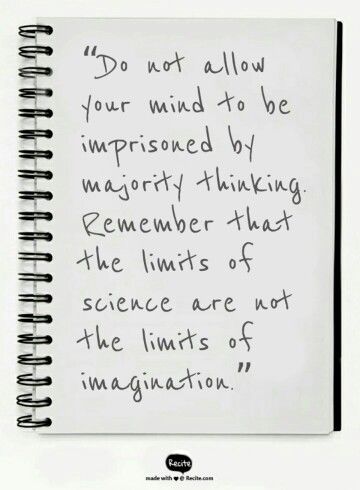 “Do not allow
your mind to be
imprisoned by
majority thinking.
Remember that
the limits of
science are not
the limits of
imagination.”
Recite
made with ♥ @ Recite.com